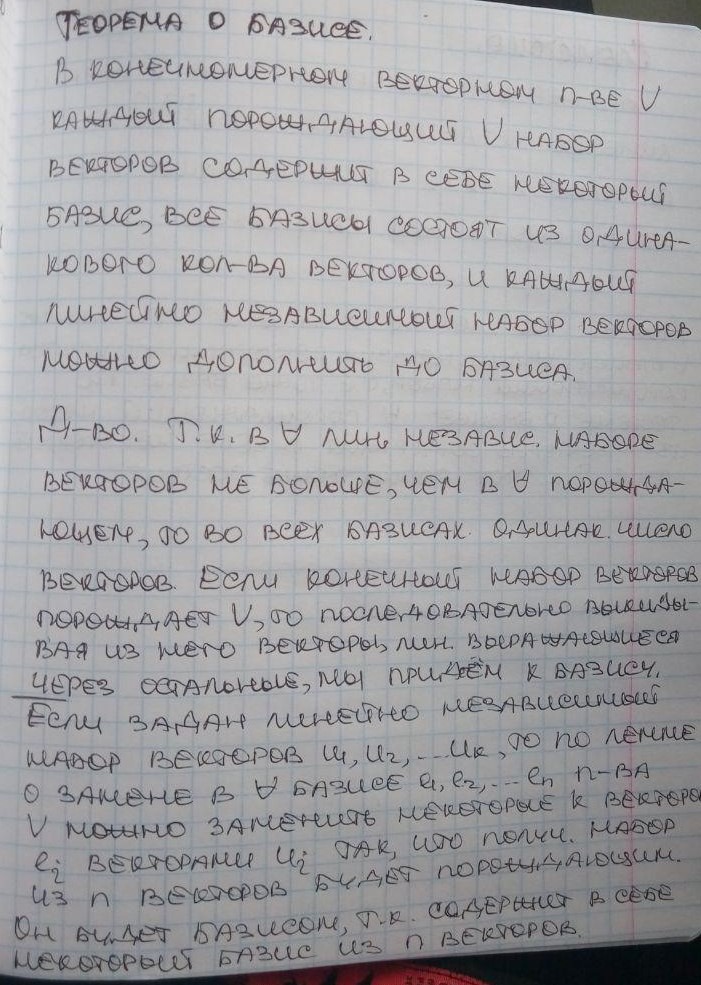 ТЕОРЕМА О БАЗИСЕ.
В КОНЕЧНОМЕРНОМ ВЕКТОРНОМ П-ВЕ V
КАЖДЫЙ ПОРОЖДАЮЩИЙ V НАБОР
ВЕКТОРОВ СОДЕРЖИТ В СЕБЕ НЕКОТОРЫЙ
БАЗИС, ВСЕ БАЗИСЫ СОСТОЯТ ИЗ ОДИНА-
КОВОГО КОЛ-ВА ВЕКТОРОВ, И КАЖДЫЙ
ЛИНЕЙНО НЕЗАВИСИМЫЙ НАБОР ВЕКТОРОВ
МОЖНО ДОПОЛНИТЬ ДО БАЗИСА.
Д-ВО. Т.К. В ∀ ЛИН. НЕЗАВИС. НАБОРЕ
ВЕКТОРОВ НЕ БОЛЬШЕ, ЧЕМ В ∀ ПОРОЖДА-
ЮЩЕМ, ТО ВО ВСЕХ БАЗИСАХ ОДИНАК. ЧИСЛО
ВЕКТОРОВ. ЕСЛИ КОНЕЧНЫЙ НАБОР ВЕКТОРОВ
ПОРОЖДАЕТ V, ТО ПОСЛЕДОВАТЕЛЬНО ВЫКИДЫ-
ВАЯ ИЗ НЕГО ВЕКТОРЫ, ЛИН. ВЫРАЖАЮЩИЕСЯ
ЧЕРЕЗ ОСТАЛЬНЫЕ, МЫ ПРИДЁМ К БАЗИСУ.
ЕСЛИ ЗАДАН ЛИНЕЙНО НЕЗАВИСИМЫЙ
НАБОР ВЕКТОРОВ u₁, u₂, ... uₖ, ТО ПО ЛЕММЕ
О ЗАМЕНЕ В ∀ БАЗИСЕ e₁, e₂, ... eₙ П-ВА
V МОЖНО ЗАМЕНИТЬ НЕКОТОРЫЕ K ВЕКТОРО
eᵢ ВЕКТОРАМИ uᵢ ТАК, ЧТО ПОЛУЧ. НАБОР
ИЗ n ВЕКТОРОВ БУДЕТ ПОРОЖДАЮЩИМ.
ОН БУДЕТ БАЗИСОМ, Т.К. СОДЕРЖИТ В СЕБЕ
НЕКОТОРЫЙ БАЗИС ИЗ n ВЕКТОРОВ.